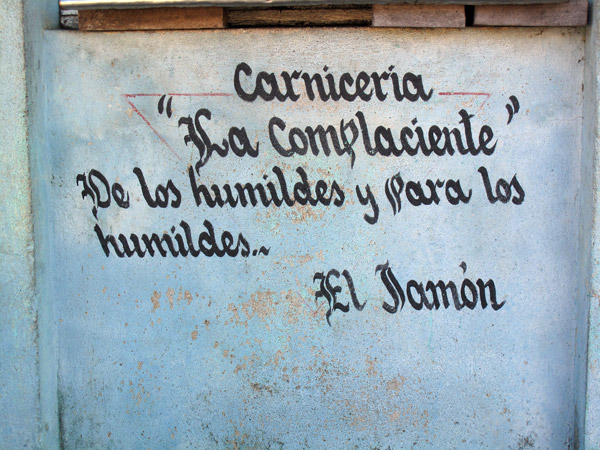 Carniceria
"La Complaciente"
De los humildes y para los
humildes..~
El Jamón